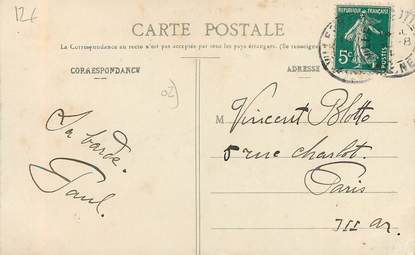 12€
CARTE POSTALE
La Correspondance au recto n'est pas acceptée par tous les pays étrangers. (Se renseigner
CORRESPONDANCE
ADRESSE
RÉPUBLIQUE FRANÇAISE
5c
POSTES
02)
M Vincent Blotto
5 rue Charlot.
Paris
III ar.
La barde.
Paul.